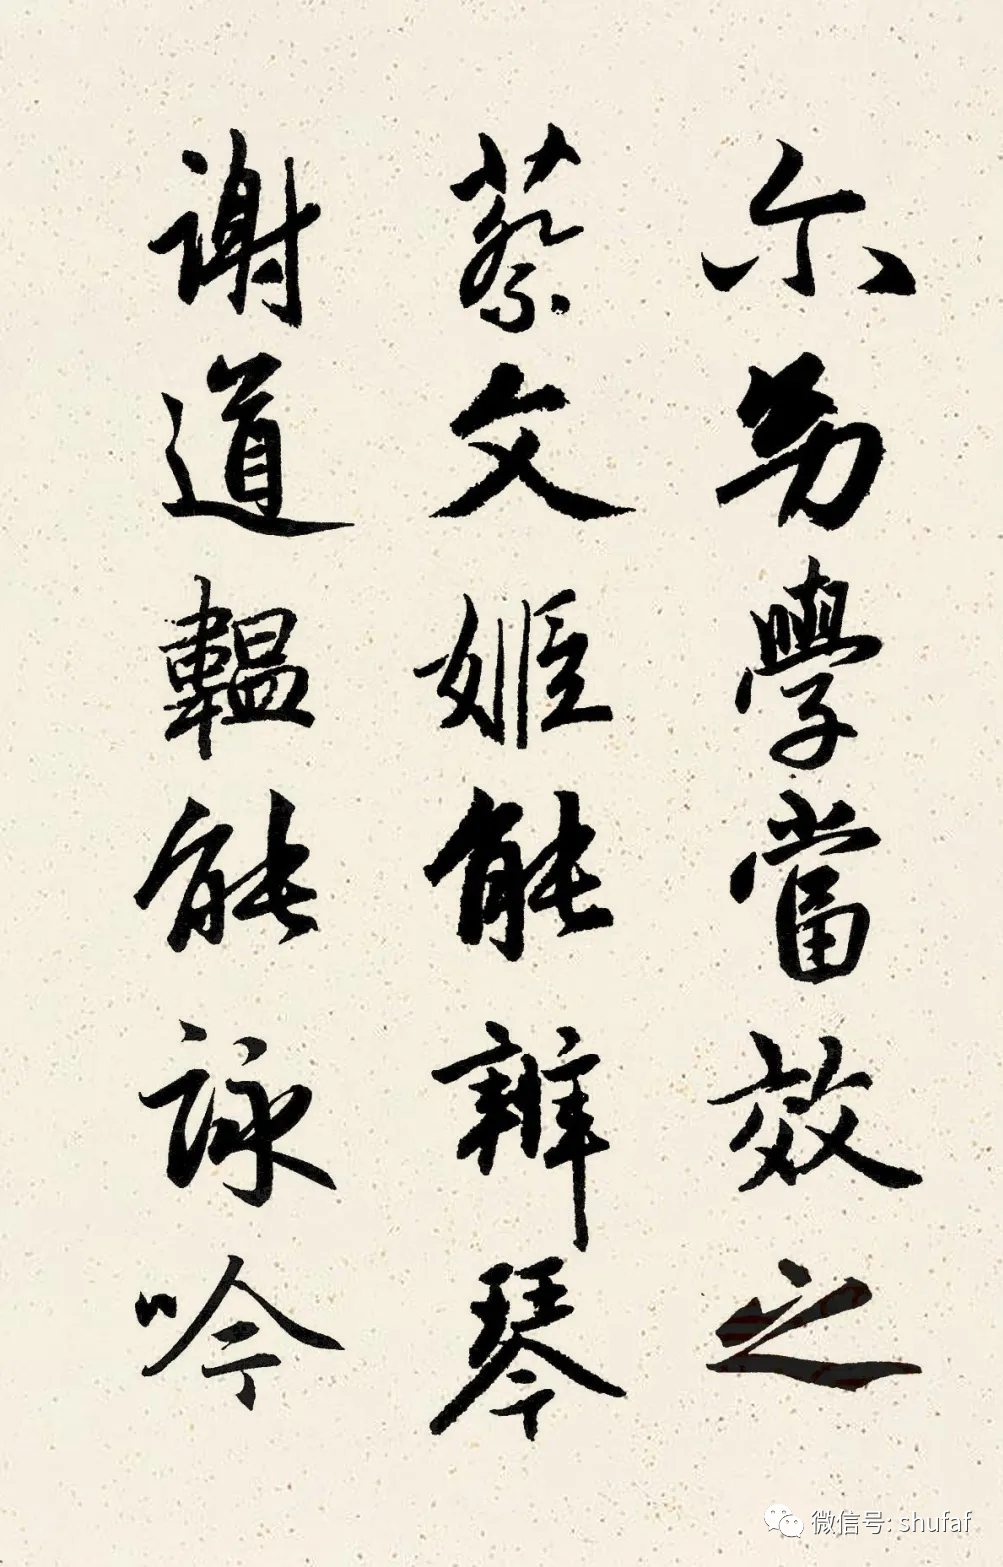 尔幼學當效之
蔡文姬能辨琴
謝道韞能詠吟
微信号: shufaf